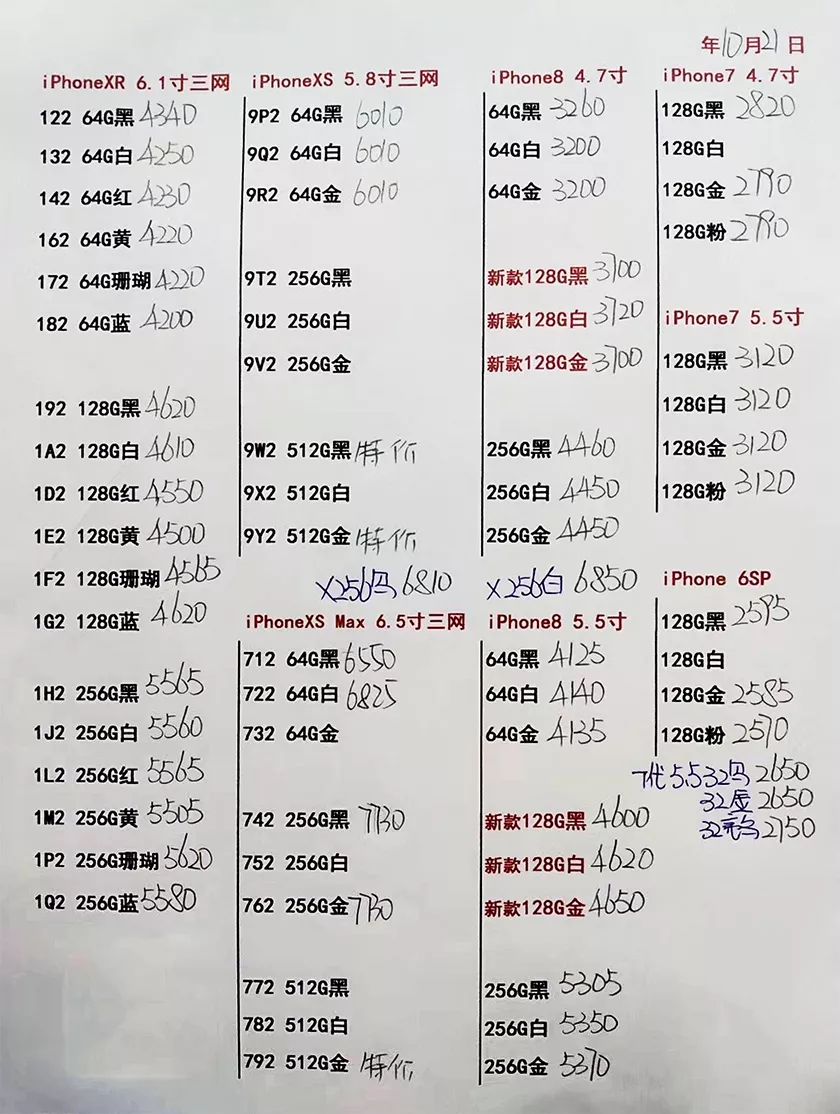 年10月21日
iPhoneXR 6.1寸三网
122 64G黑 4340
132 64G白 4250
142 64G红 4230
162 64G黄 4220
172 64G珊瑚 4220
182 64G蓝 4200
192 128G黑 4620
1A2 128G白 4610
1D2 128G红 4550
1E2 128G黄 4500
1F2 128G珊瑚 4565
1G2 128G蓝 4620
1H2 256G黑 5565
1J2 256G白 5560
1L2 256G红 5565
1M2 256G黄 5505
1P2 256G珊瑚 5620
1Q2 256G蓝 5580
iPhoneXS 5.8寸三网
9P2 64G黑 6010
9Q2 64G白 6010
9R2 64G金 6010
9T2 256G黑
9U2 256G白
9V2 256G金
9W2 512G黑 特价
9X2 512G白
9Y2 512G金 特价
X256 6810
iPhoneXS Max 6.5寸三网
712 64G黑 6550
722 64G白 6825
732 64G金
742 256G黑 7130
752 256G白
762 256G金 7130
772 512G黑
782 512G白
792 512G金 特价
iPhone8 4.7寸
64G黑 3260
64G白 3200
64G金 3200
新款128G黑 3700
新款128G白 3720
新款128G金 3700
256G黑 4460
256G白 4450
256G金 4450
X256白 6850
iPhone8 5.5寸
64G黑 4125
64G白 4140
64G金 4135
新款128G黑 4600
新款128G白 4620
新款128G金 4650
256G黑 5305
256G白 5350
256G金 5370
iPhone7 4.7寸
128G黑 2820
128G白
128G金 2790
128G粉 2790
iPhone7 5.5寸
128G黑 3120
128G白 3120
128G金 3120
128G粉 3120
iPhone 6SP
128G黑 2595
128G白
128G金 2585
128G粉 2570
7代5.5 32 2650
32 2650
32 2750